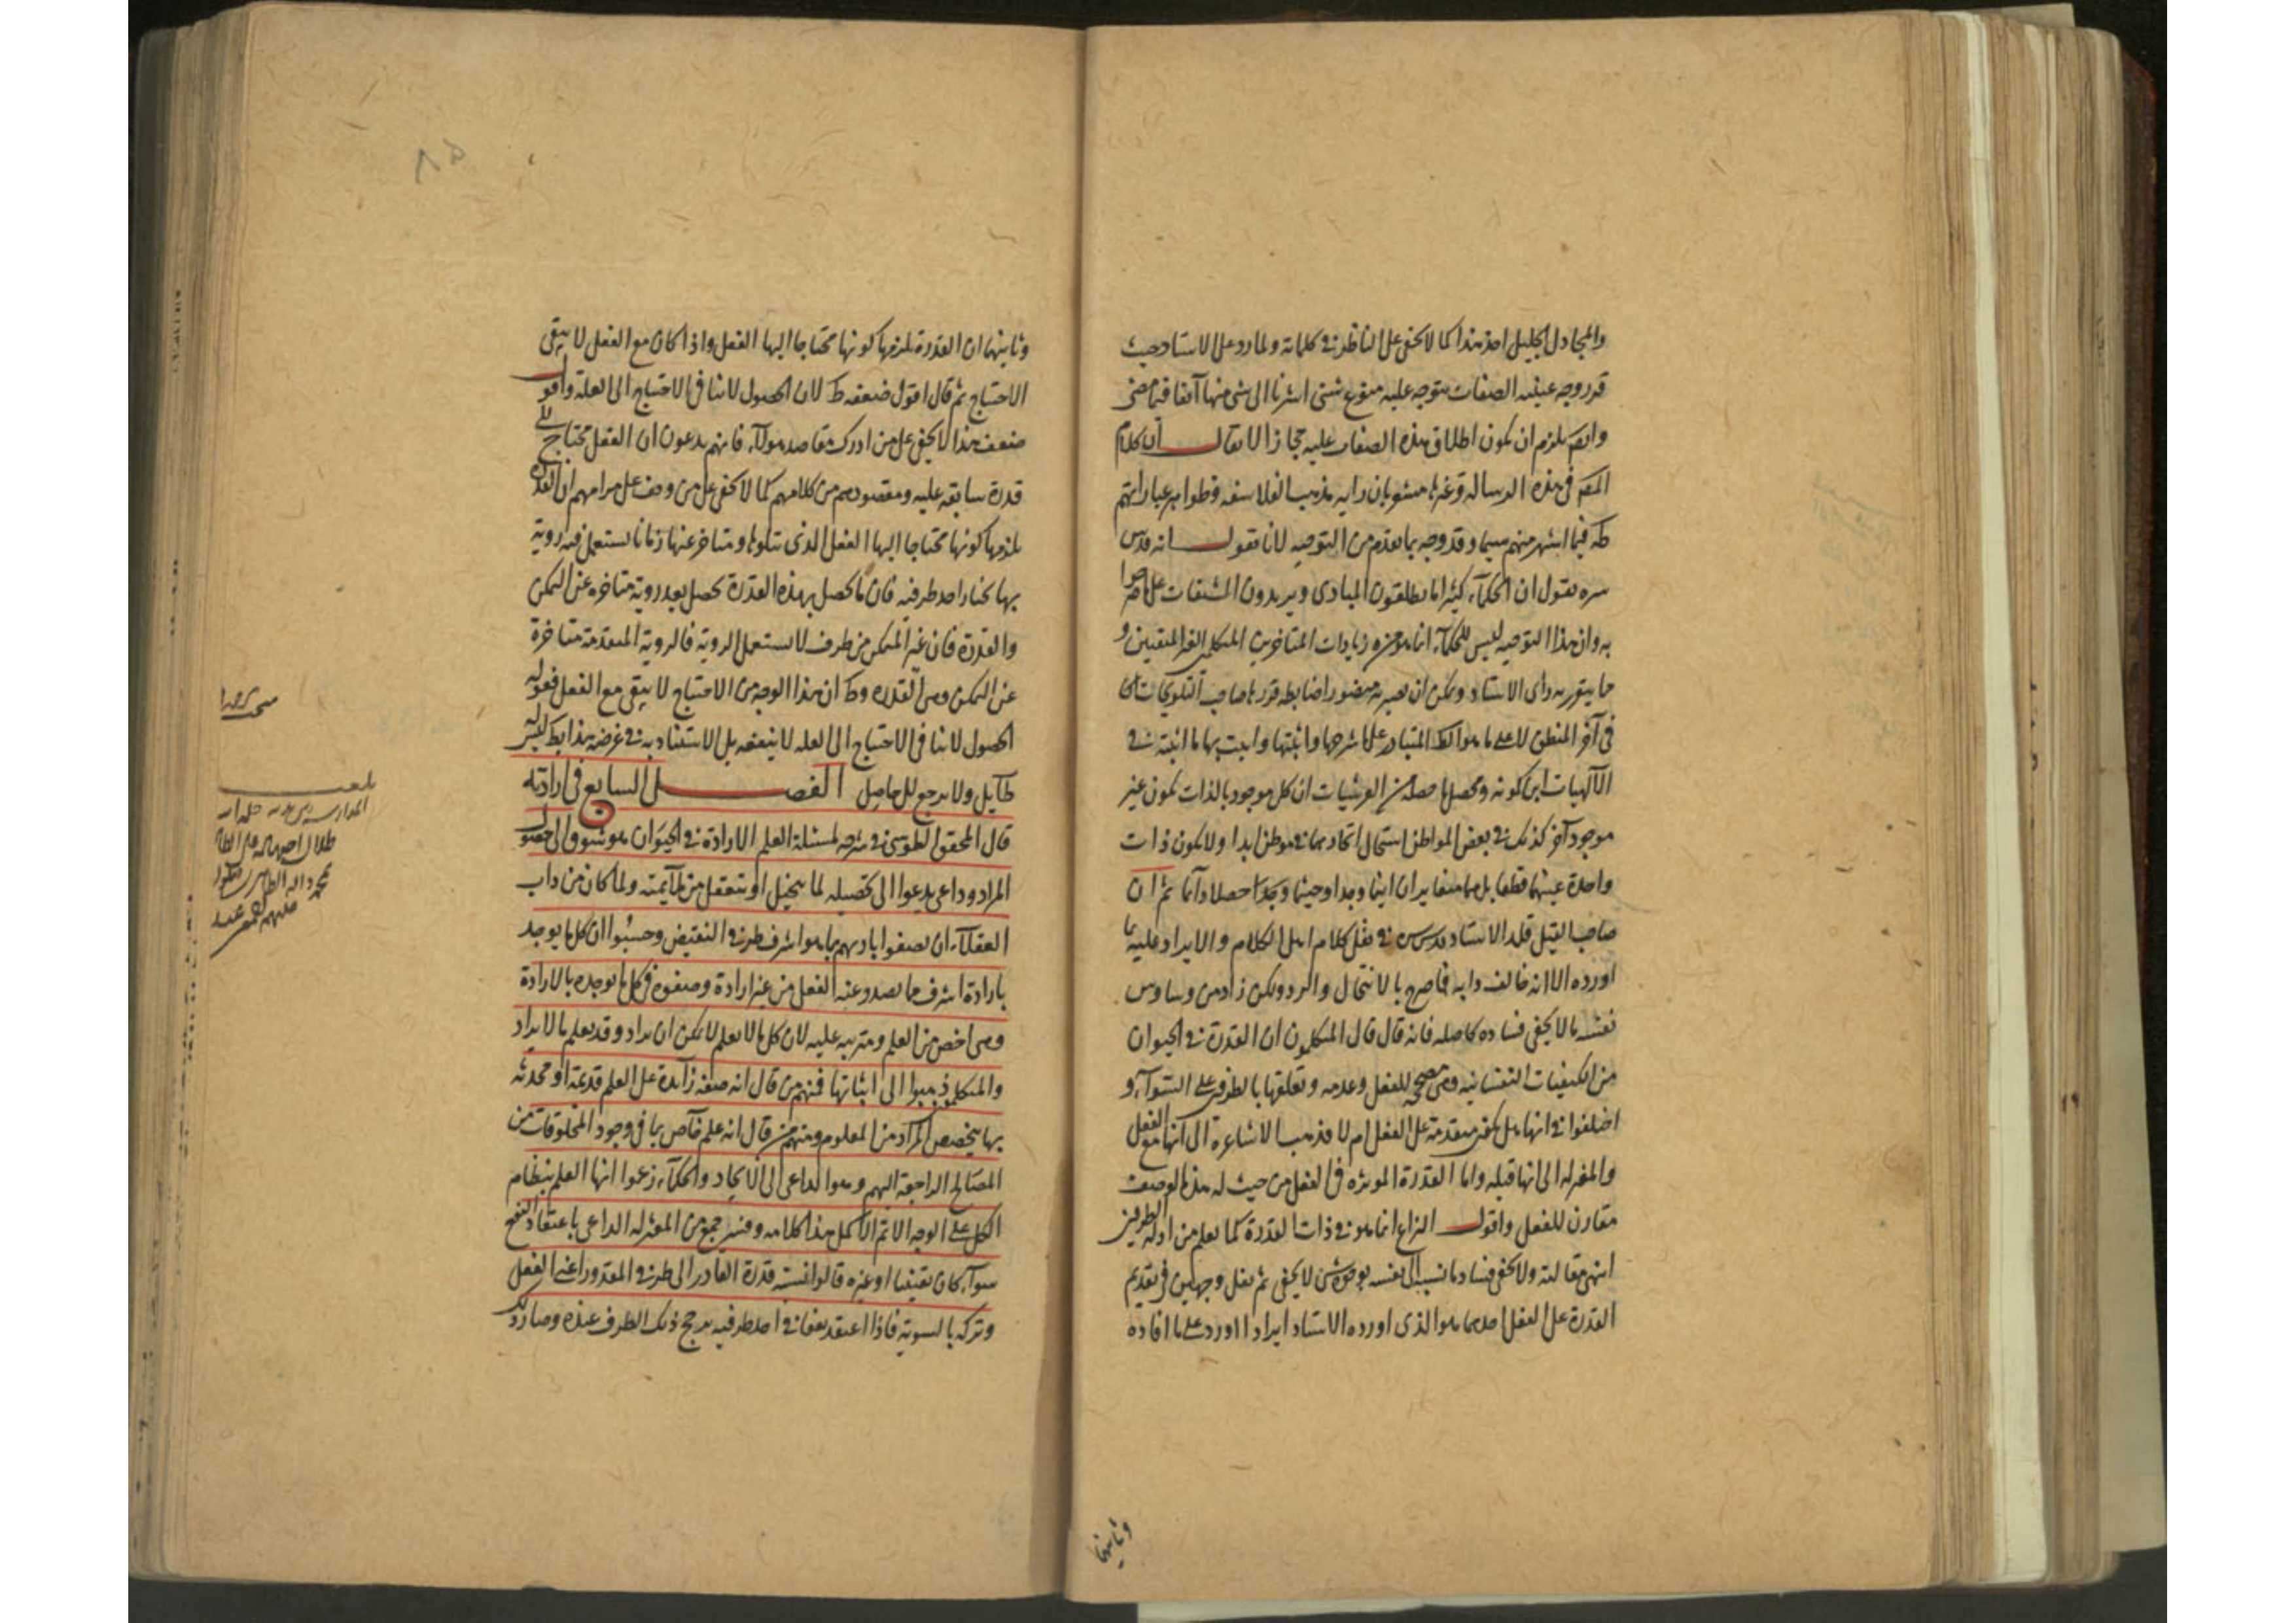 والمجادل الجليل اخذ هذا كما لا يخفى على الناظر في كلماته ولما رد على الاستاد حيث
قرر وجه عينية الصفات يتوجه عليه منوع شتى اشرنا الى شئ منها آنفا فيما مضى
وايضا يلزم ان يكون اطلاق هذه الصفات عليه مجازا لا يقال ان كلام
المص في هذه الرسالة وغيرها مشعر بان رايه مذهب الفلاسفه وظواهر عباراتهم
فيما اشتهر منهم سيما وقد وجه بما تقدم من التوجيه لانا نقول انه قدس
سره يقول ان الحكماء كثيرا ما يطلقون المبادى ويريدون المشتقات على ما صرحوا
به وان هذا التوجيه ليس للحكماء انما هو من زيادات المتاخرين المتكلمين الغير المتقنين و
ما يتقرر به راى الاستاد ويمكن ان يصير به منصورا ضابطه قررها صاحب التلويحات
في آخر المنطق لا على ما هو المتبادر على ما شرحها واثبتها واثبت بها ما اثبته في
الآلهيات ومحصل ما حصله من العرشيات ان كل موجود بالذات يكون غير
موجود آخر كذلك في بعض المواطن استحال اتحادهما في موطن ابدا ولا يكون ذات
واحدة عينهما قطعا بل هما متغايران اينما وجدا وحيثما وجدا حصلا دائما ثم ان
صاحب القيل قلد الاستاد قدس سره في نقل كلام اهل الكلام والايراد عليه بما
اورده الا انه خالف دابه فاصرح بالانتحال والرد ولكن زاد من وساوس
نفسه ما لا يخفى فساده كاصله فانه قال قال المتكلمون ان القدرة في الحيوان
من الكيفيات النفسانيه وهى مصححه للفعل وعدمه وتعلقها بالطرفين على السواء و
اختلفوا في انها هل يكون متقدمة على الفعل ام لا فذهب الاشاعرة الى انها مع الفعل
والمعتزله الى انها قبله واما القدرة الموثره في الفعل من حيث له هذا الوصف
مقارن للفعل واقول النزاع انما هو في ذات القدرة كما يعلم من ادلة الطرفين
انتهى مقالته ولا يخفى فساد ما نسبه الى نفسه بوجوه شتى لا يخفى ثم نقل وجهين في تقديم
القدرة على الفعل احدهما هو الذى اورده الاستاد ايرادا اورد على ما افاده
وثانيهما
وثانيهما ان القدرة يلزمها كونها محتاجا اليها الفعل واذا كان مع الفعل لا يبقى
الاحتياج ثم قال اقول ضعفه ظ لان الحصول لا ينافي الاحتياج الى العلة واقول
ضعف هذا لا يخفى على من ادرك مقاصد هولاء فانهم يدعون ان الفعل محتاج الى
قدرة سابقه عليه ومقصودهم من كلامهم كما لا يخفى على من وقف على مرامهم ان القدرة
يلزمها كونها محتاجا اليها الفعل الذى يتلوها ومتاخر عنها زمانا يستعمل فيه روية
بها يختار احد طرفيه فان ما يحصل بهذه القدرة يحصل بعد روية متاخره عن التمكن
والقدرة فان غير المتمكن من طرف لا يستعمل الروية فالروية المتقدمة متاخرة
عن التمكن وهى القدره وظ ان هذا الوجه من الاحتياج لا يبقى مع الفعل فقوله
الحصول لا ينافي الاحتياج الى العله لا ينفعه بل الاستناد به في غرضه هذا
طائل ولا يرجع الى حاصل الفصل السابع في ارادته
قال المحقق الطوسى في شرحه لمسئلة العلم الارادة في الحيوان هو شوق الى حصول
المراد وداعى يدعوا الى تحصيله لما يتخيل او يتعقل من ملايمته ولما كان من داب
العقلاء ان يصفوا باديهم بما هو اشرف طرفي النقيض وحسبوا ان كل ما يوجد
بارادة اشرف مما يصدر عنه الفعل من غير ارادة وصفوه في كل ما يوجده بالارادة
وهى اخص من العلم ومترتبه عليه لان كل ما لا يعلم لا يمكن ان يراد وقد يعلم ما لا يراد
والمتكلمون ذهبوا الى اثباتها فمنهم من قال انه صفة زائدة على العلم قديمة او محدثه
بها يتخصص المراد من المعلوم ومنهم من قال انه علم خاص بما في وجود المخلوقات من
المصالح الراجعة اليهم وهو الداعى الى الايجاد والحكماء زعموا انها العلم بنظام
الكل على الوجه الاتم الاكمل هذا كلامه وفسر جمع من المعتزله الداعى باعتقاد النفع
سواء كان يقينيا او غيره قالوا نسبته قدرة القادر الى طرفي المقدور اعنى الفعل
وتركه بالسويه فاذا اعتقد نفعا في احد طرفيه يرجح ذلك الطرف عنده وصار ذلك